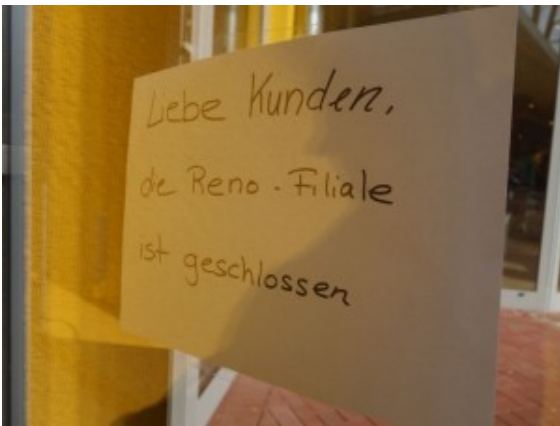 Liebe Kunden,
die Reno-Filiale
ist geschlossen